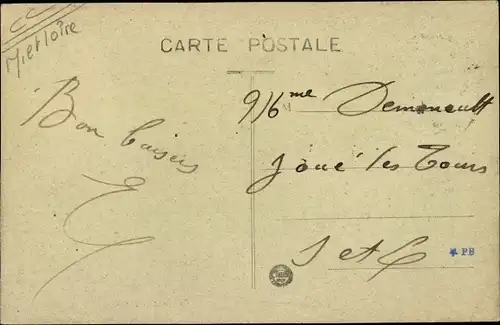 M et Loire
CARTE POSTALE
Bon baisers
Mme Demenault
Joué les Tours
I et L
* PB